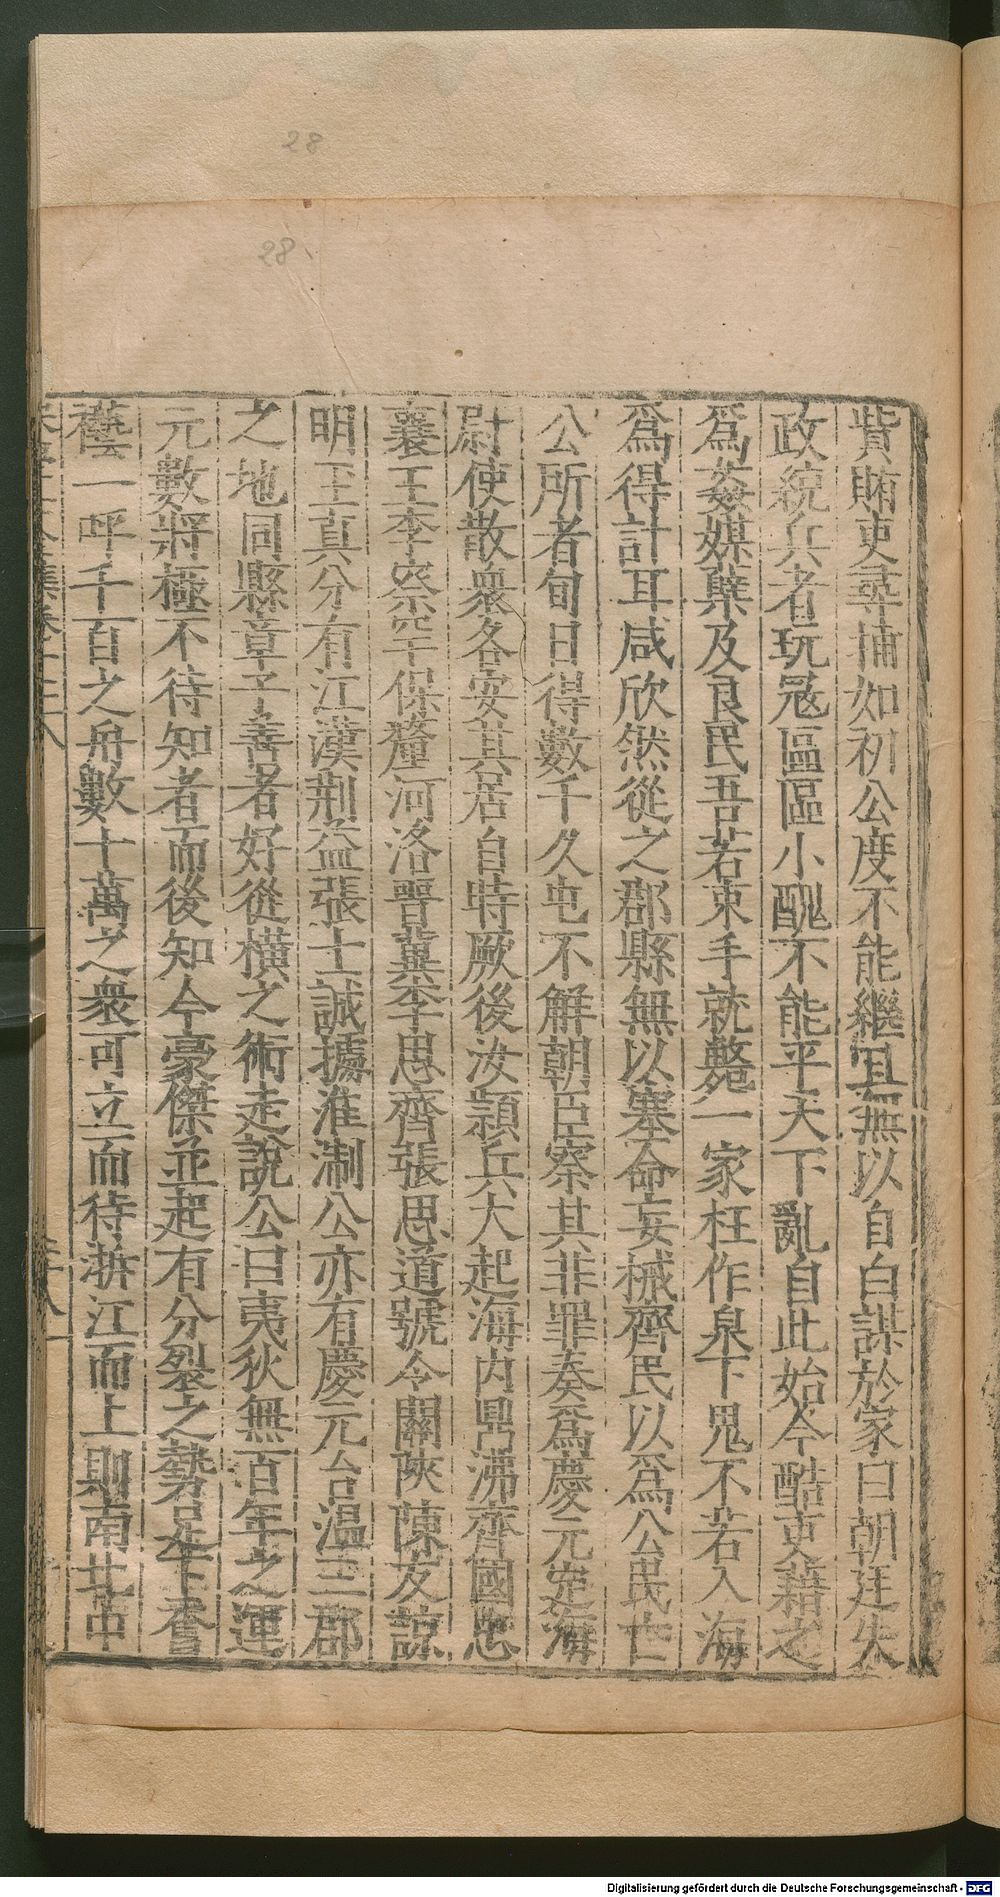 28
28
貲賄吏尋捕如初公度不能繼且無以自白謀於家曰朝廷失
政統兵者玩寇區區小醜不能平天下亂自此始今酷吏藉之
爲姦媒孽及良民吾若束手就斃一家枉作泉下鬼不若入海
爲得計耳咸欣然從之郡縣無以塞命妄械齊民以爲公民亡
公所者旬日得數千久屯不解朝臣察其非罪奏爲慶元定海
尉使散衆各安其居自時厥後汝潁兵大起海内鼎沸齊國忠
襄王李察罕保釐河洛晋冀李思齊張思道號令關陝陳友諒
明玉真分有江漢荆益張士誠據淮淛公亦有慶元台温三郡
之地同縣章子善者好從橫之術走說公曰夷狄無百年之運
元數將極不待知者而後知今豪傑並起有分裂之勢足下奮
襼一呼千百之舟數十萬之衆可立而待泝江而上則南北中
Digitalisierung gefördert durch die Deutsche Forschungsgemeinschaft - DFG